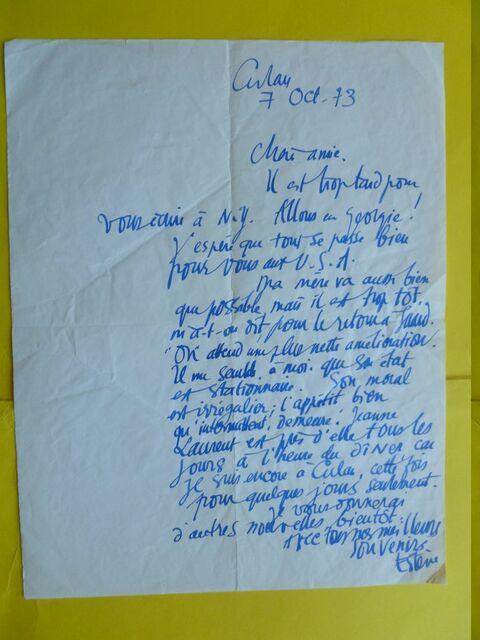 Culan
7 Oct. 73
Chère amie.
Il est trop tard pour
vous écrire à N.Y. Allons en Georgie!
J'espère que tout se passe bien
pour vous aux U.S.A.
Ma mère va aussi bien
que possible, mais il est trop tôt,
m'a-t-on dit, pour le retour a
"On attend une plus nette amélioration.
Il me semble, a moi, que son état
est stationnaire. Son moral
est irrégulier; l'appétit bien
qu'intermittent, demeure. Jeanne
Laurent est près d'elle tous les
jours à l'heure du dîner car
je suis encore a Culan, cette fois
pour quelques jours seulement.
Je vous donnerai
d'autres nouvelles bientôt.
Avec tous mes meilleurs
souvenirs.
Estève